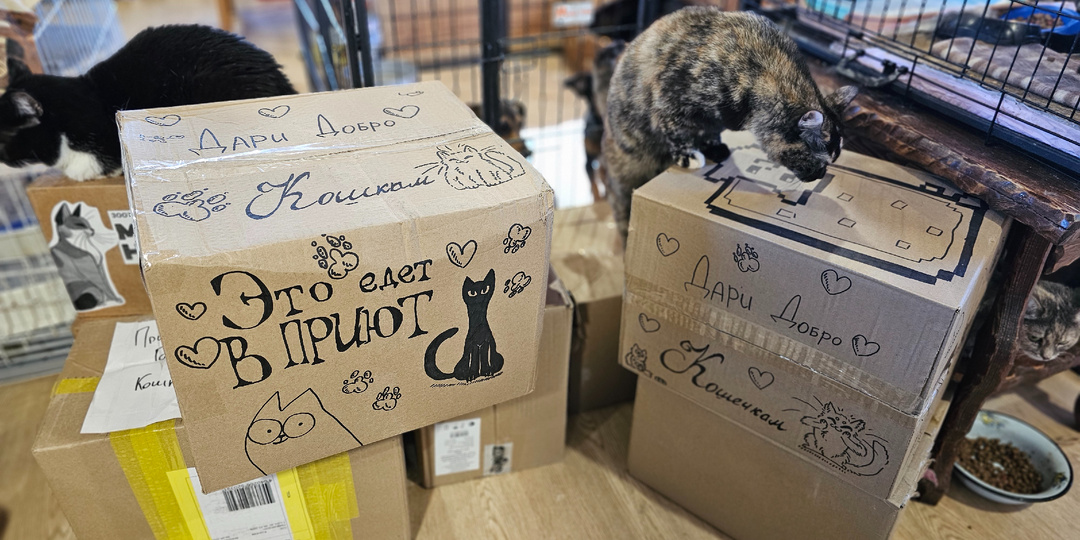 Дари Добро
Кошкам
Это едет
в приют
При
Кошк
Дари Добро
Кошечкам